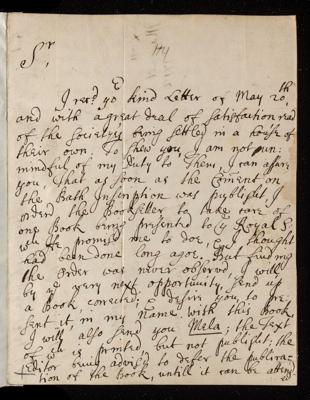 Sr,
I recd yor kind Letter of May 20th,
and with a great deal of Satisfaction read
of the Societys being settled in a house of
their own. To shew you I am not un:
mindful of my Duty to Them, I can assure
you, That as soon as the Comment on
the Bath Inscription was publisht, I
orderd the Bookseller to take care of
one Book being presented to ye Royal S.
wch He promisd me to doe, & I thought
had been done long agoe. But finding
the Order was never observd, I will
by ye very next opportunity, send up
a Book, corrected; & desire you to pre
sent it, in my Name with this Book
I will also send you Mela; the Text
of wch is printed but not publisht; the
Editor being advis'd to defer the publica-
tion of the Book, untill it can be